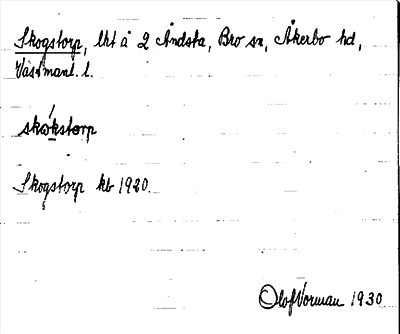 Skogstorp, lht å 2 Åndsta, Bro sn, Åkerbo hd,
Västmanl. l.
skωkstorp
Skogstorp kb 1920.
Olof Norman 1930